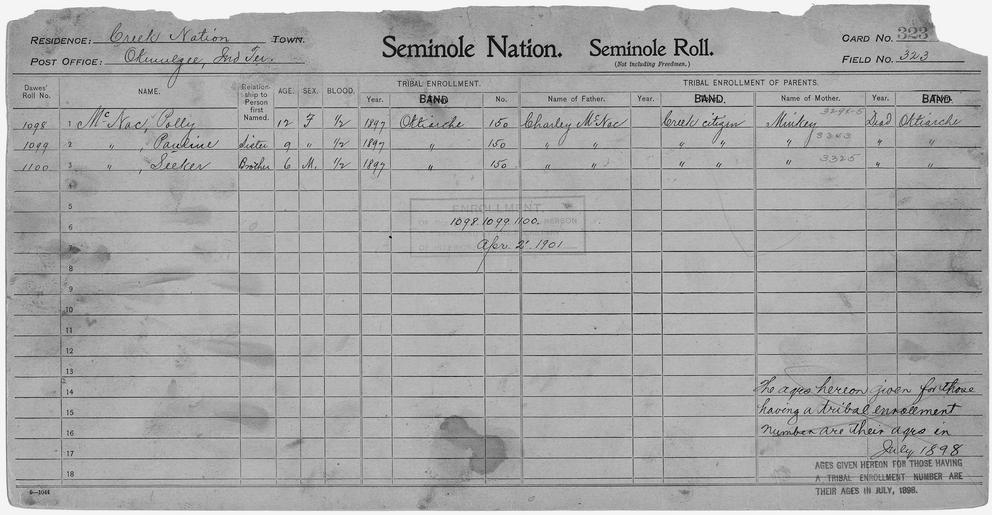 RESIDENCE: Creek Nation TOWN.
POST OFFICE: Okmulgee, Ind Ter.
Seminole Nation. Seminole Roll.
(Not Including Freedmen.)
CARD NO. 323
FIELD NO. 323
Dawes' Roll No. NAME. Relationship to Person first Named. AGE. SEX. BLOOD. TRIBAL ENROLLMENT. TRIBAL ENROLLMENT OF PARENTS.
Year. BAND No. Name of Father. Year. BAND. Name of Mother. Year. BAND.
1098 1 McNac, Polly 12 F 1/2 1897 Ottiarche 150 Charley McNac Creek citizen Minkey Dead Ottiarche
1099 2 " , Pauline Sister 9 " 1/2 1897 " 150 " " " " " 3343 " "
1100 3 " , Seeker Brother 6 M. 1/2 1897 " 150 " " " " " 3325 " "
4
5
ENROLLMENT
6 1098.1099.1100. PERSON
7 Apr. 2" 1901
8
9
10
11
12
13
14 The ages hereon given for those
15 having a tribal enrollment
16 number are their ages in
17 July 1898
18 AGES GIVEN HEREON FOR THOSE HAVING
A TRIBAL ENROLLMENT NUMBER ARE
THEIR AGES IN JULY, 1898.
6—1044